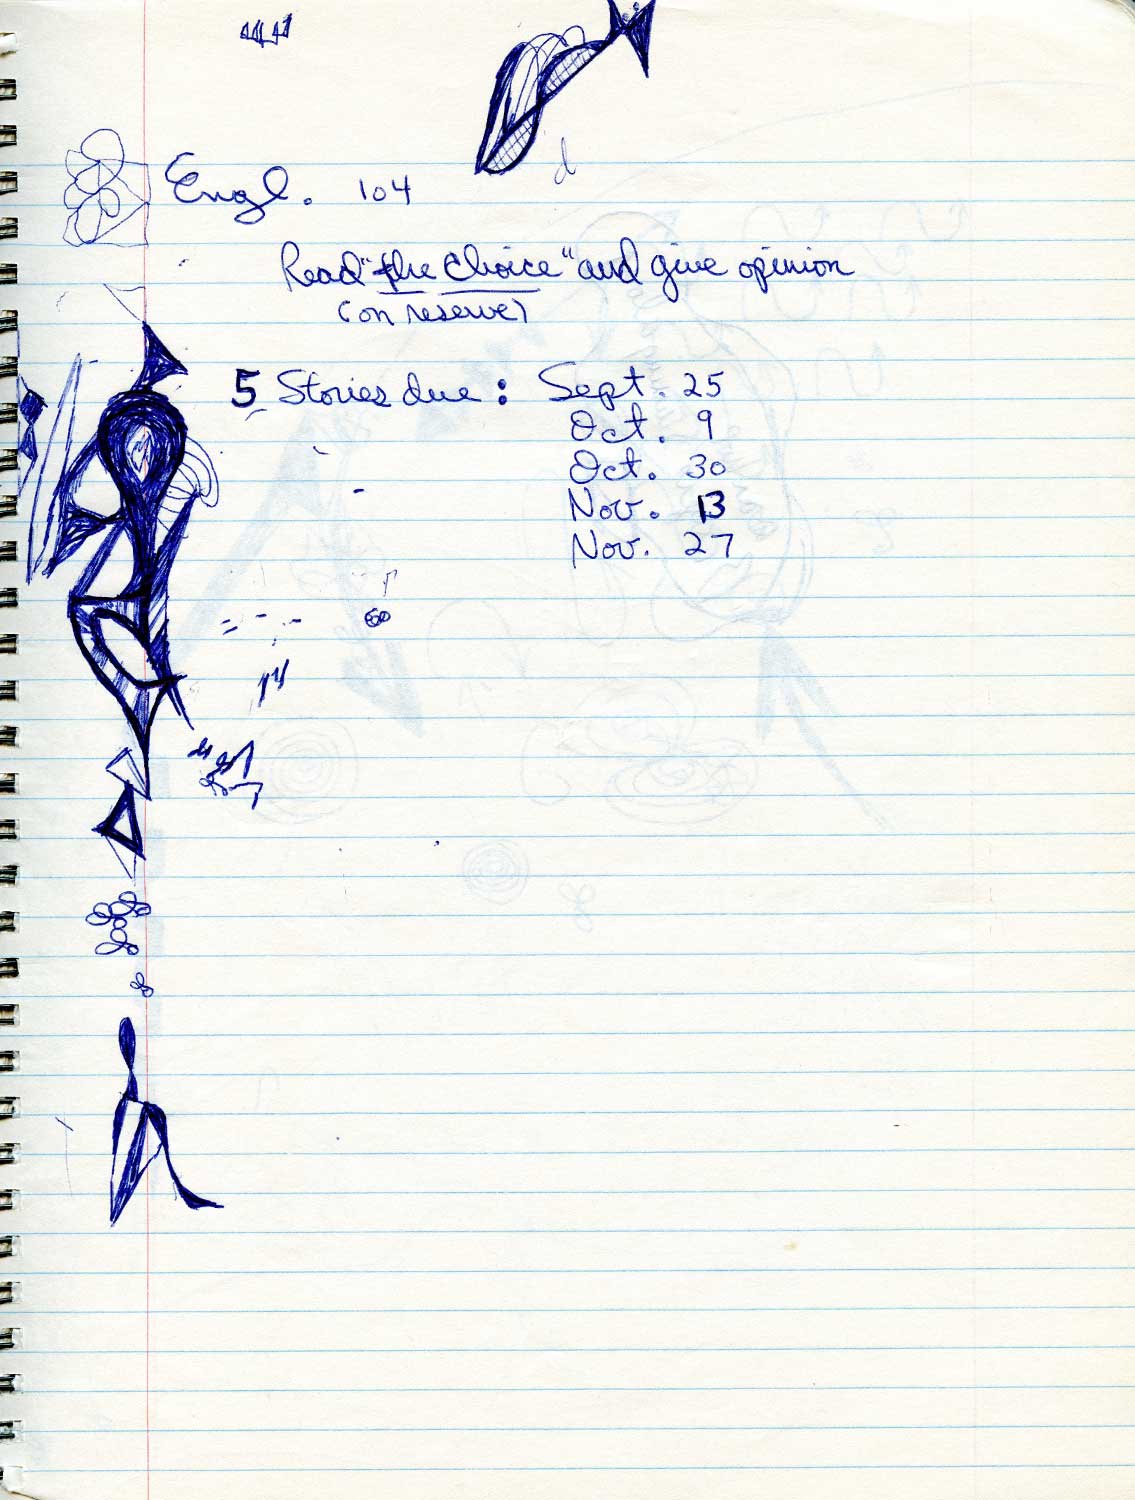 Engl. 104
Read "the Choice" and give opinion
(on reserve)
5 Stories due: Sept. 25
Oct. 9
Oct. 30
Nov. 13
Nov. 27